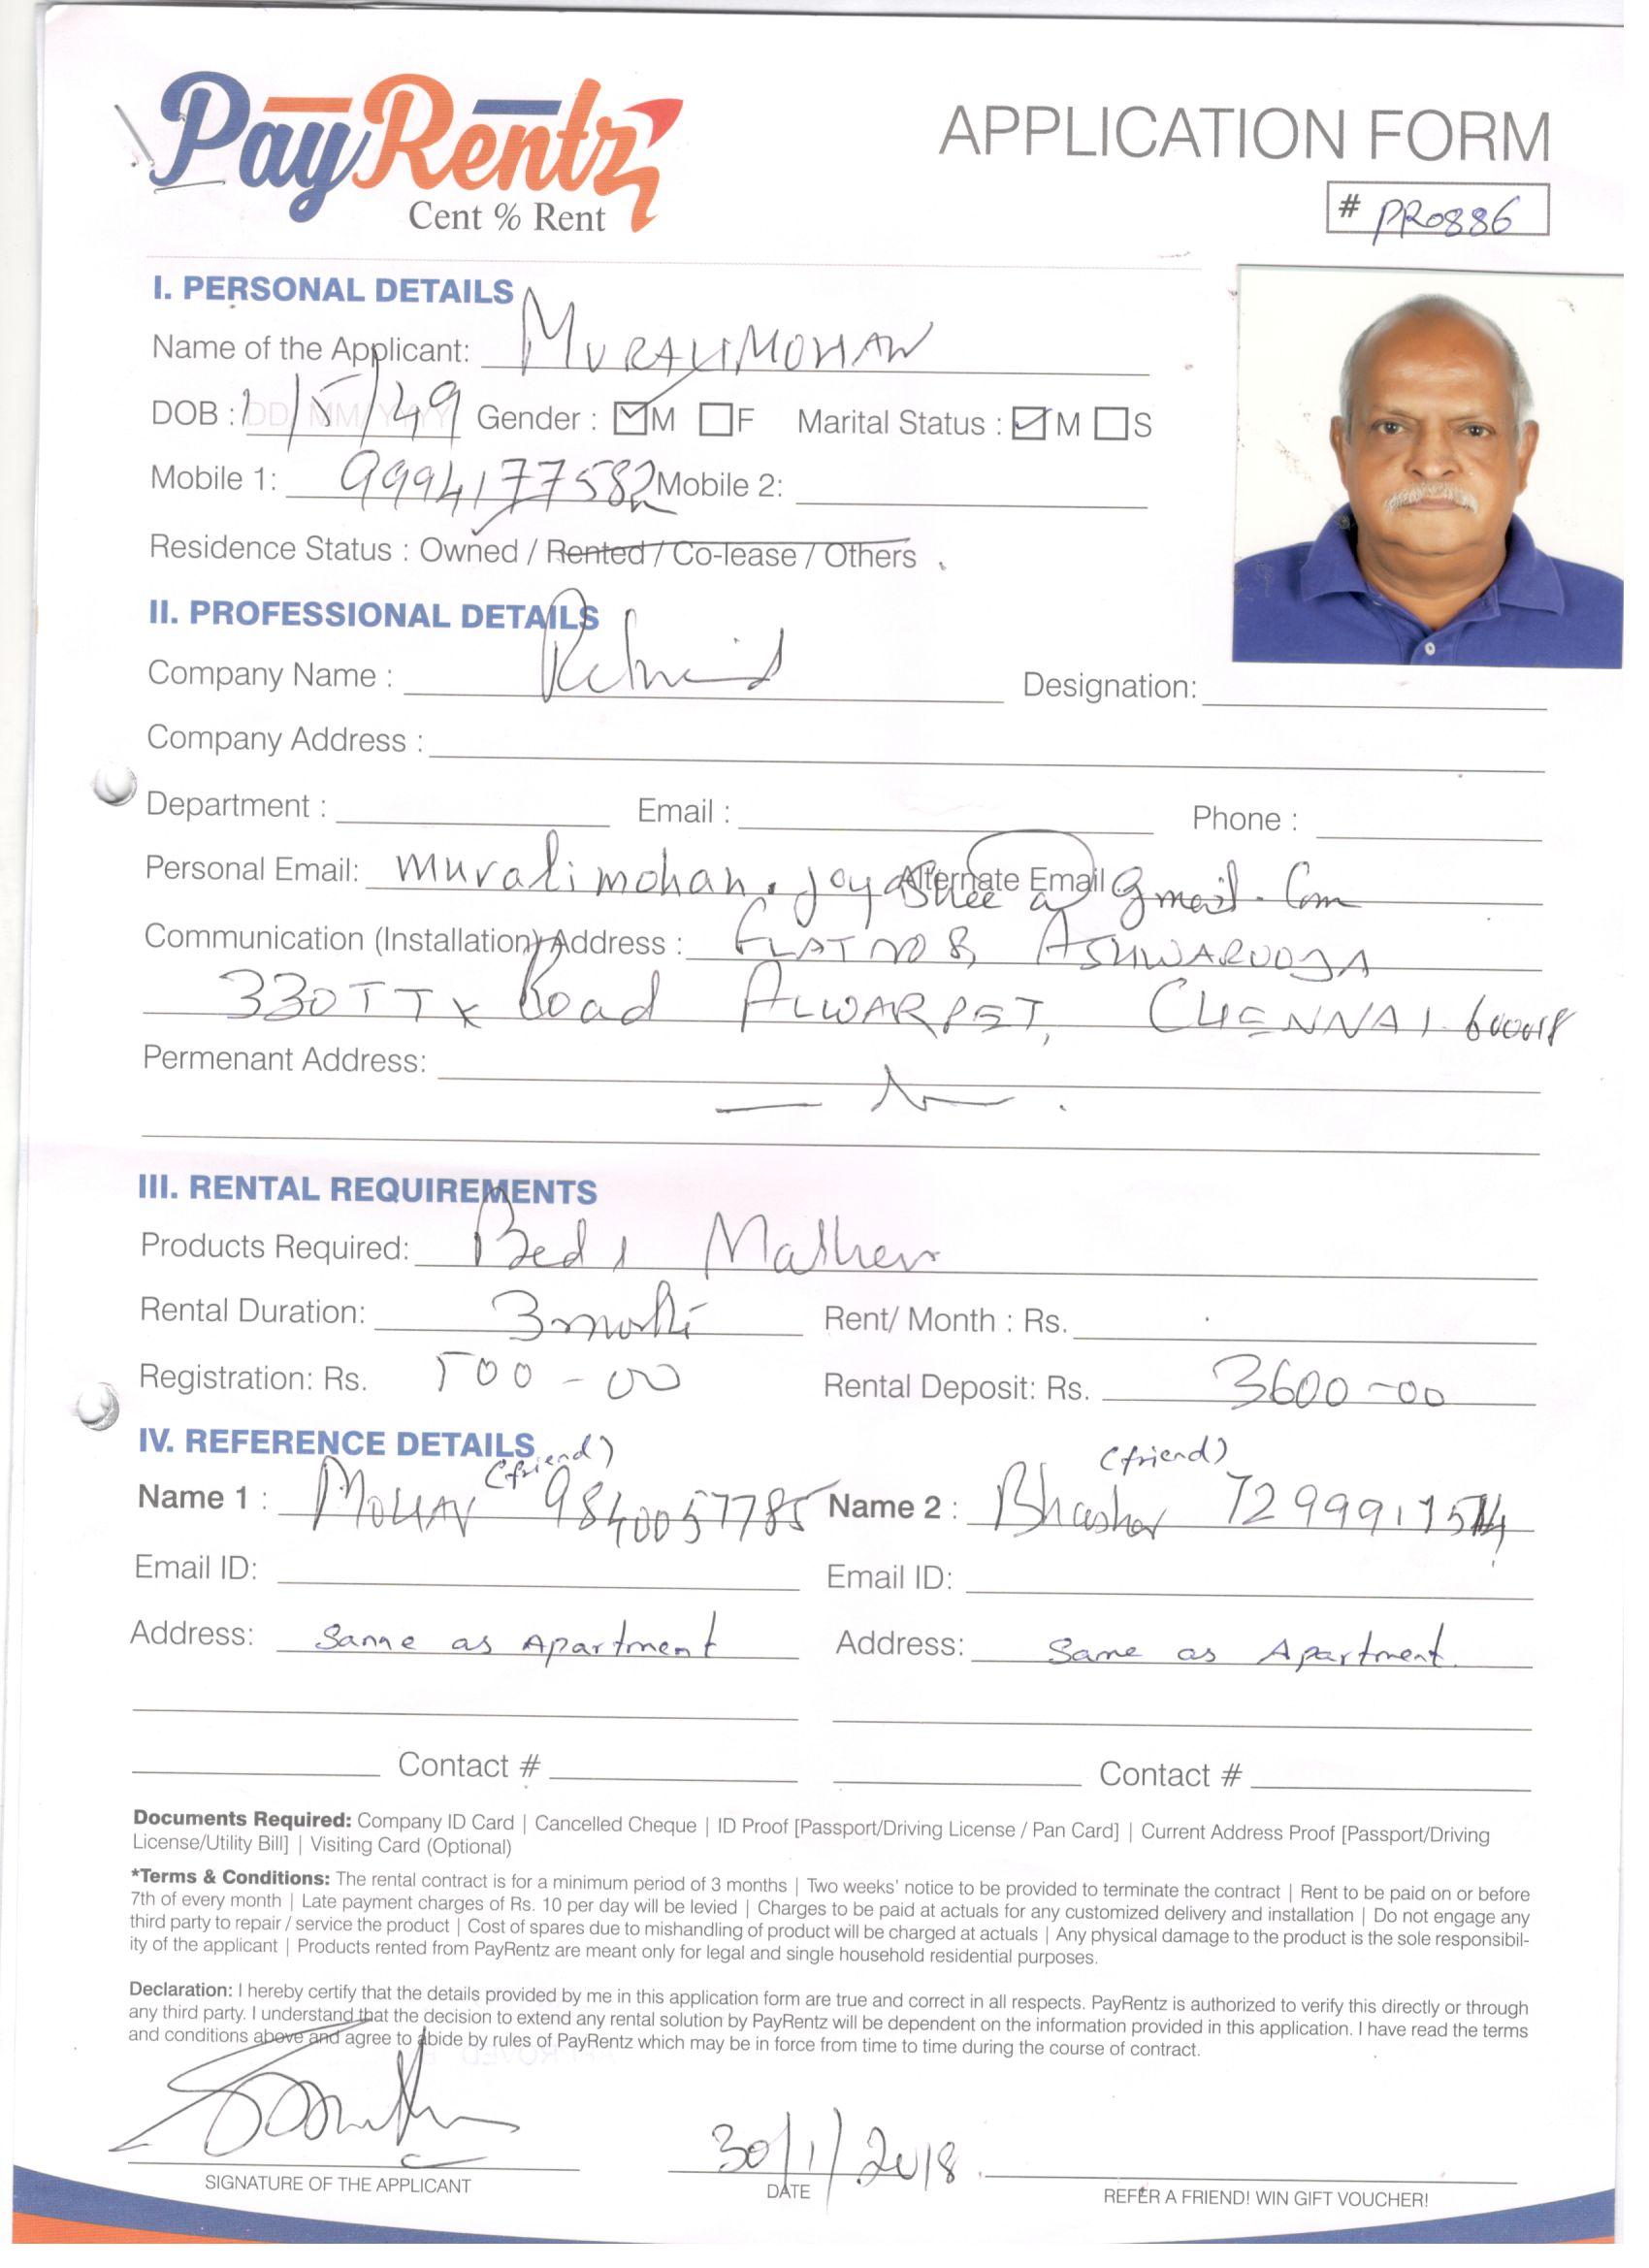 PayRentz
Cent % Rent
APPLICATION FORM
# PR0886
I. PERSONAL DETAILS
Name of the Applicant: MURALIMOHAN
DOB : 1/5/49 Gender : M F Marital Status : M S
Mobile 1: 9994177582 Mobile 2:
Residence Status : Owned / Rented / Co-lease / Others
II. PROFESSIONAL DETAILS
Company Name : Retired Designation:
Company Address :
Department : Email : Phone :
Personal Email: muralimohan.jayashree@gmail.com Alternate Email
Communication (Installation) Address : FLAT NO 8, ASHWAROOJA
330 TTK Road ALWARPET, CHENNAI 600018
Permenant Address:
III. RENTAL REQUIREMENTS
Products Required: Bed,
Rental Duration: 3 Rent/ Month : Rs.
Registration: Rs. 500-00 Rental Deposit: Rs. 3600-00
IV. REFERENCE DETAILS
(friend) (friend)
Name 1 : MOHAN 9840057785 Name 2 : Bhashar
Email ID: Email ID:
Address: Same as Apartment Address: Same as Apartment.
Contact # Contact #
Documents Required: Company ID Card | Cancelled Cheque | ID Proof [Passport/Driving License / Pan Card] | Current Address Proof [Passport/Driving
License/Utility Bill] | Visiting Card (Optional)
*Terms & Conditions: The rental contract is for a minimum period of 3 months | Two weeks' notice to be provided to terminate the contract | Rent to be paid on or before
7th of every month | Late payment charges of Rs. 10 per day will be levied | Charges to be paid at actuals for any customized delivery and installation | Do not engage any
third party to repair / service the product | Cost of spares due to mishandling of product will be charged at actuals | Any physical damage to the product is the sole responsibil-
ity of the applicant | Products rented from PayRentz are meant only for legal and single household residential purposes.
Declaration: I hereby certify that the details provided by me in this application form are true and correct in all respects. PayRentz is authorized to verify this directly or through
any third party. I understand that the decision to extend any rental solution by PayRentz will be dependent on the information provided in this application. I have read the terms
and conditions above and agree to abide by rules of PayRentz which may be in force from time to time during the course of contract.
30/1/2018
SIGNATURE OF THE APPLICANT DATE REFER A FRIEND! WIN GIFT VOUCHER!